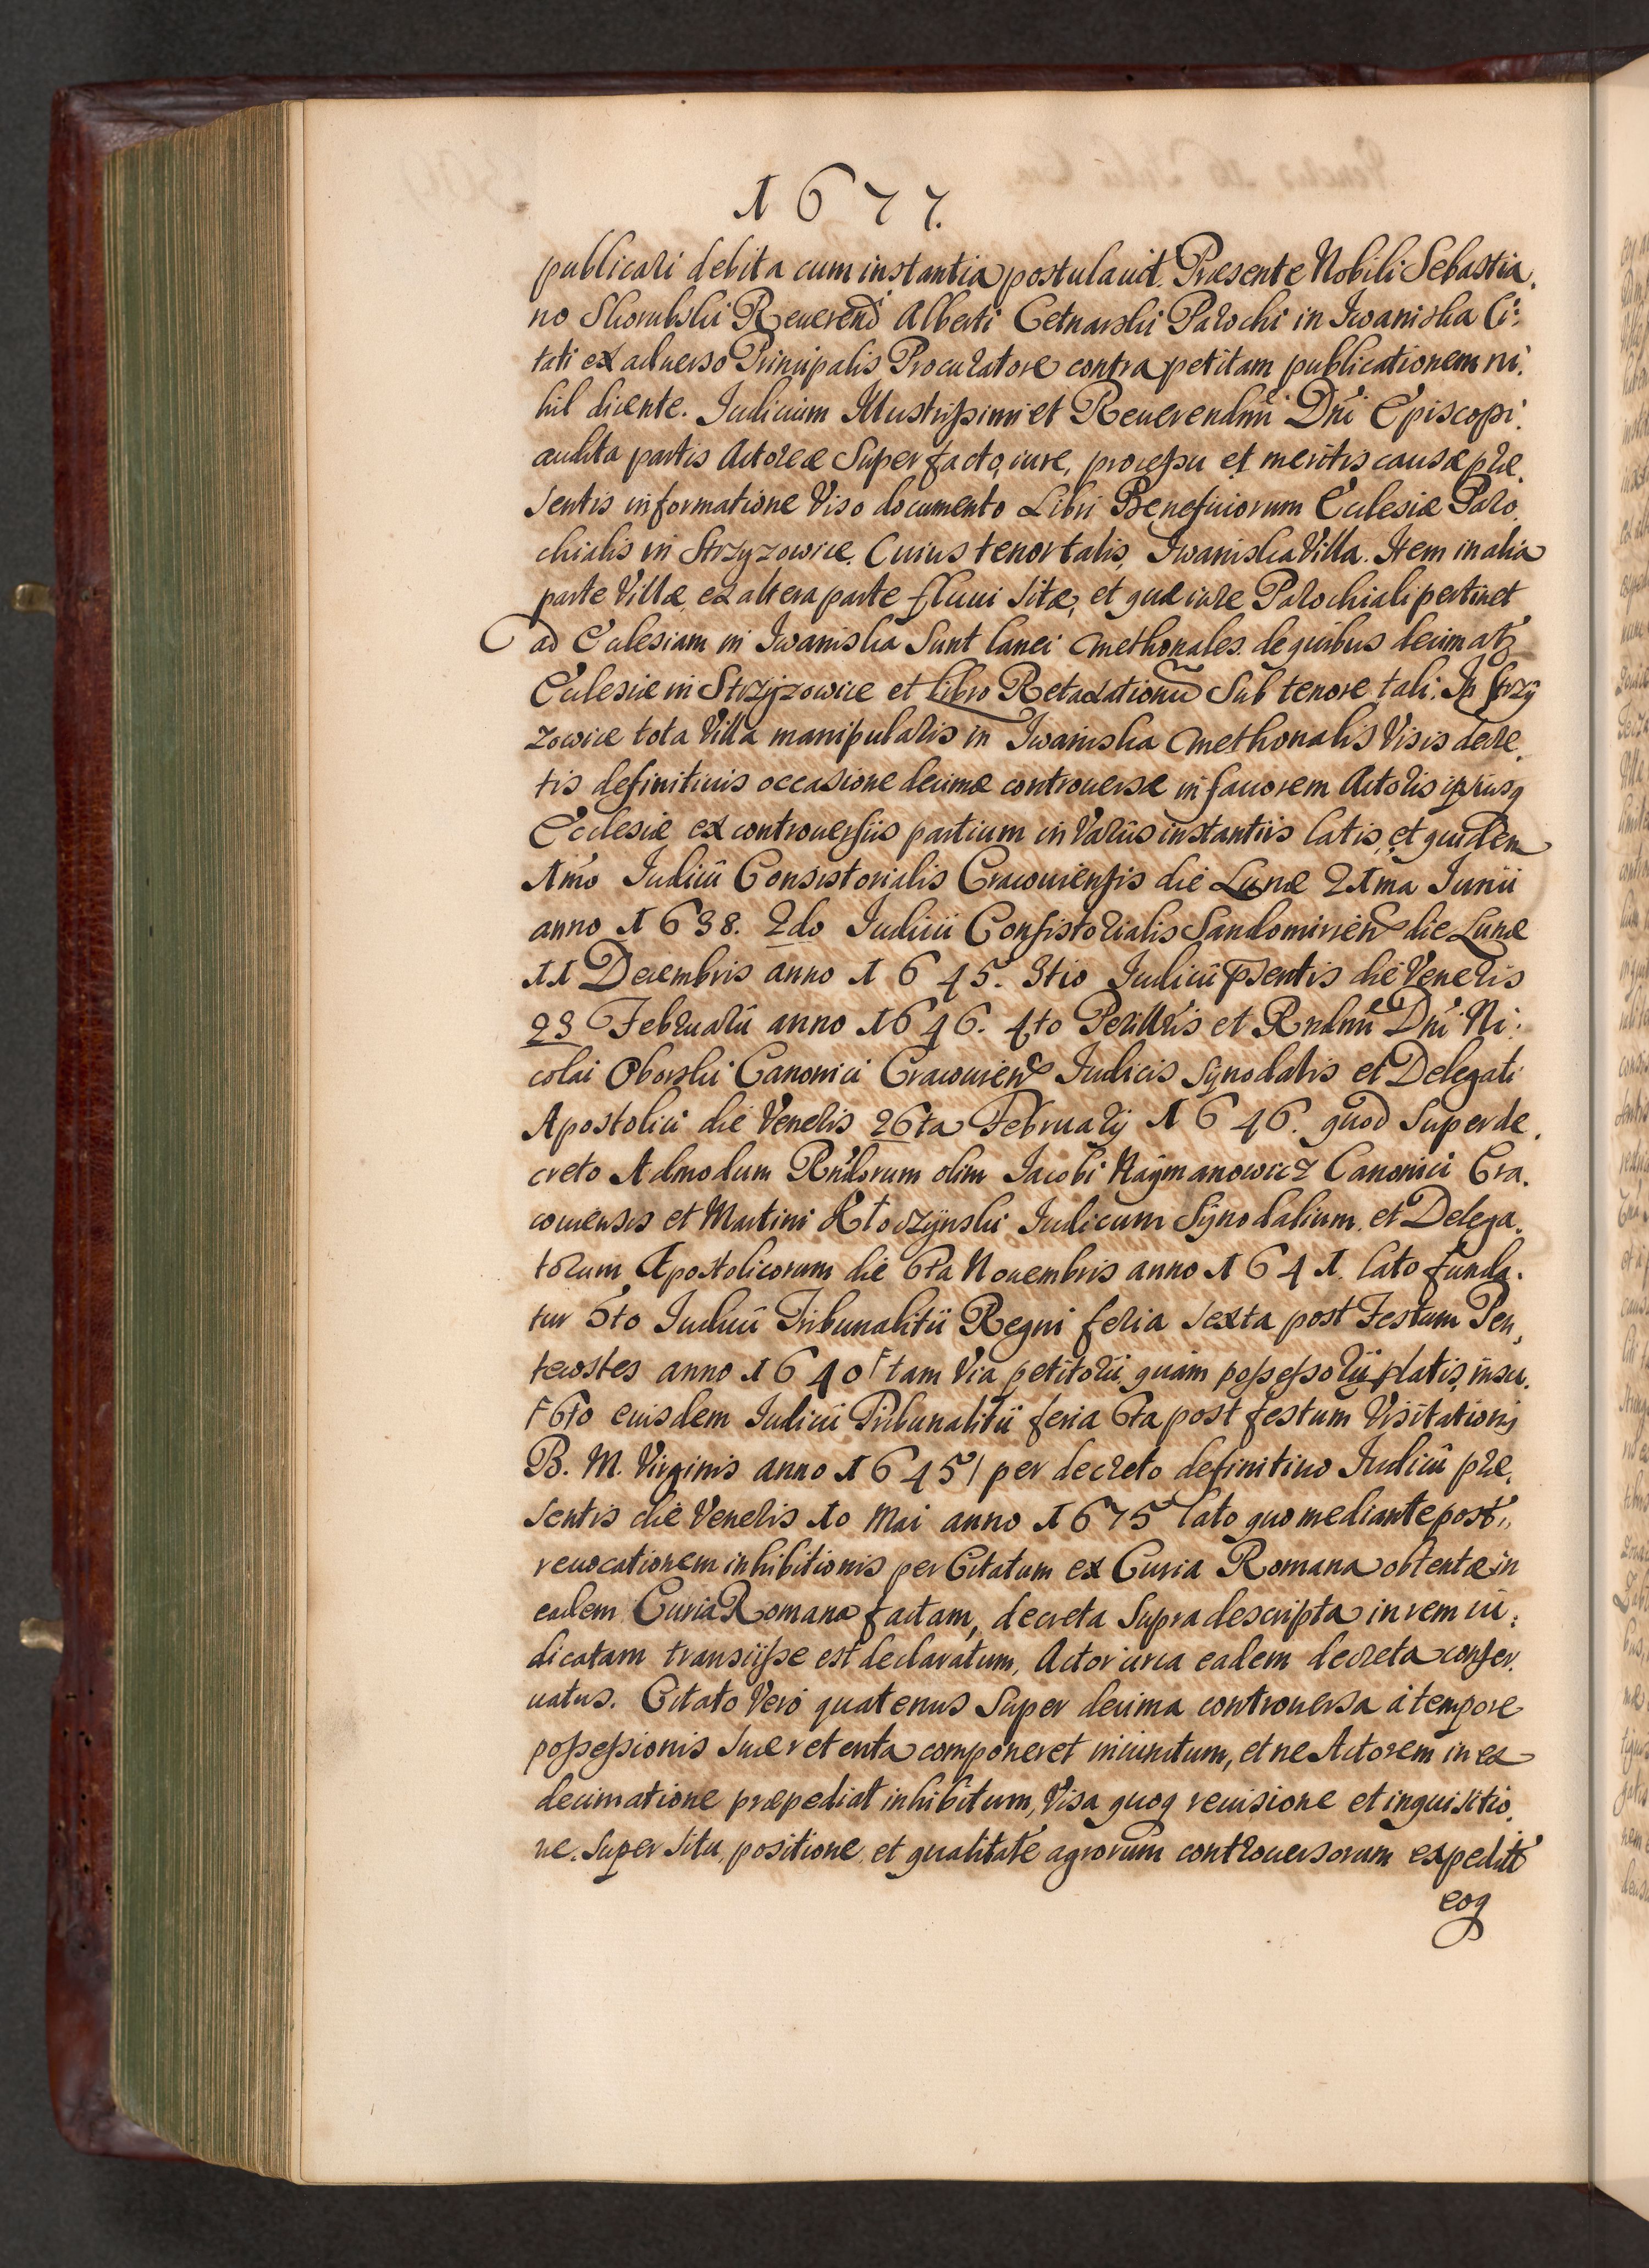 1677.
publicari debita cum instantia postulauit. Præsente Nobili Sebastia.
no Skorubski Reuerend Alberti Cetnarski Parochi in Iwaniska Ci:
tati ex aduerso Principalis Procuratore contra petitam publicationem ni.
hil dicente. Iudicium Illustrissimi et Reuerendmi Dni Episcopi.
audita partis Actoreæ Super facto, iure, processu et meritis causæ præ.
sentis informatione Viso documento Libri Beneficiorum Ecclesiæ Paro.
chialis in Strzyzowice. Cuius tenor talis, Iwaniska Villa. Item in alia
parte Villæ, ex altera parte fluui sitæ, et quæ iure Parochiali pertinet
ad Ecclesiam in Iwaniska Sunt lanei Cmethonales de quibus decimat
Ecclesiæ in Strzyzowice et libro Retaxationu Sub tenore tali. In Strzy
zowice tota Villa manipularis in Iwaniska Cmethonalis Visis decre.
tis definitiuis occasione decimæ controuersæ in fauorem Actoris ipsiusq
Ecclesiæ ex controuersiis partium in Variis instantiis latis, et quidem
1mo Iudicii Consistorialis Cracouiensis die Lunæ 21ma Iunii
anno 1638. 2do Iudicii Consistorialis Sandomirien die Lunæ
11 Decembris anno 1645. 3tio Iudicii psentis die Veneris
23 Februarii anno 1646. 4to Perillris et Rndmi Dni Ni.
colai Oborski Canonici Cracouien Iudicis Synodalis et Delegati
Apostolici die Veneris 26ta Februarij 1646. quod Super de.
creto Admodum Rndorum olim Iacobi Naymanowicz Canonici Cra.
couiensis et Martini Kłoczynski Iudicum Synodalium et Delega.
torum Apostolicorum die 6ta Nouembris anno 1641. lato funda.
tur 5to Iudicii Tribunalitii Regni feria sexta post Festum Pen,
tecostes anno 1640 F tam Via petitorii quam possessorii latis, insu.
F 6to eiusdem Iudicii Tribunalitii feria 6ta post festum Visitationis
B. M. Virginis anno 1645 / per decreto definitiuo Iudicii præ.
sentis die Veneris 10 Mai anno 1675 lato quo mediante post,,
reuocationem inhibitionis per Citatum ex Curia Romana obtentæ in
eadem Curia Romana factam, decreta Supra descripta in rem iu:
dicatam transiisse est declaratum, Actor circa eadem decreta conser.
uatus. Citato Vero quatenus Super decima controuersa a tempore
possessionis suæ retenta componeret iniunctum, et ne Actorem in ex
decimatione præpediat inhibitum, Visa quoq reuisione et inquisitio.
ne Super situ, positione et qualitate agrorum controuersorum expedit
eoq